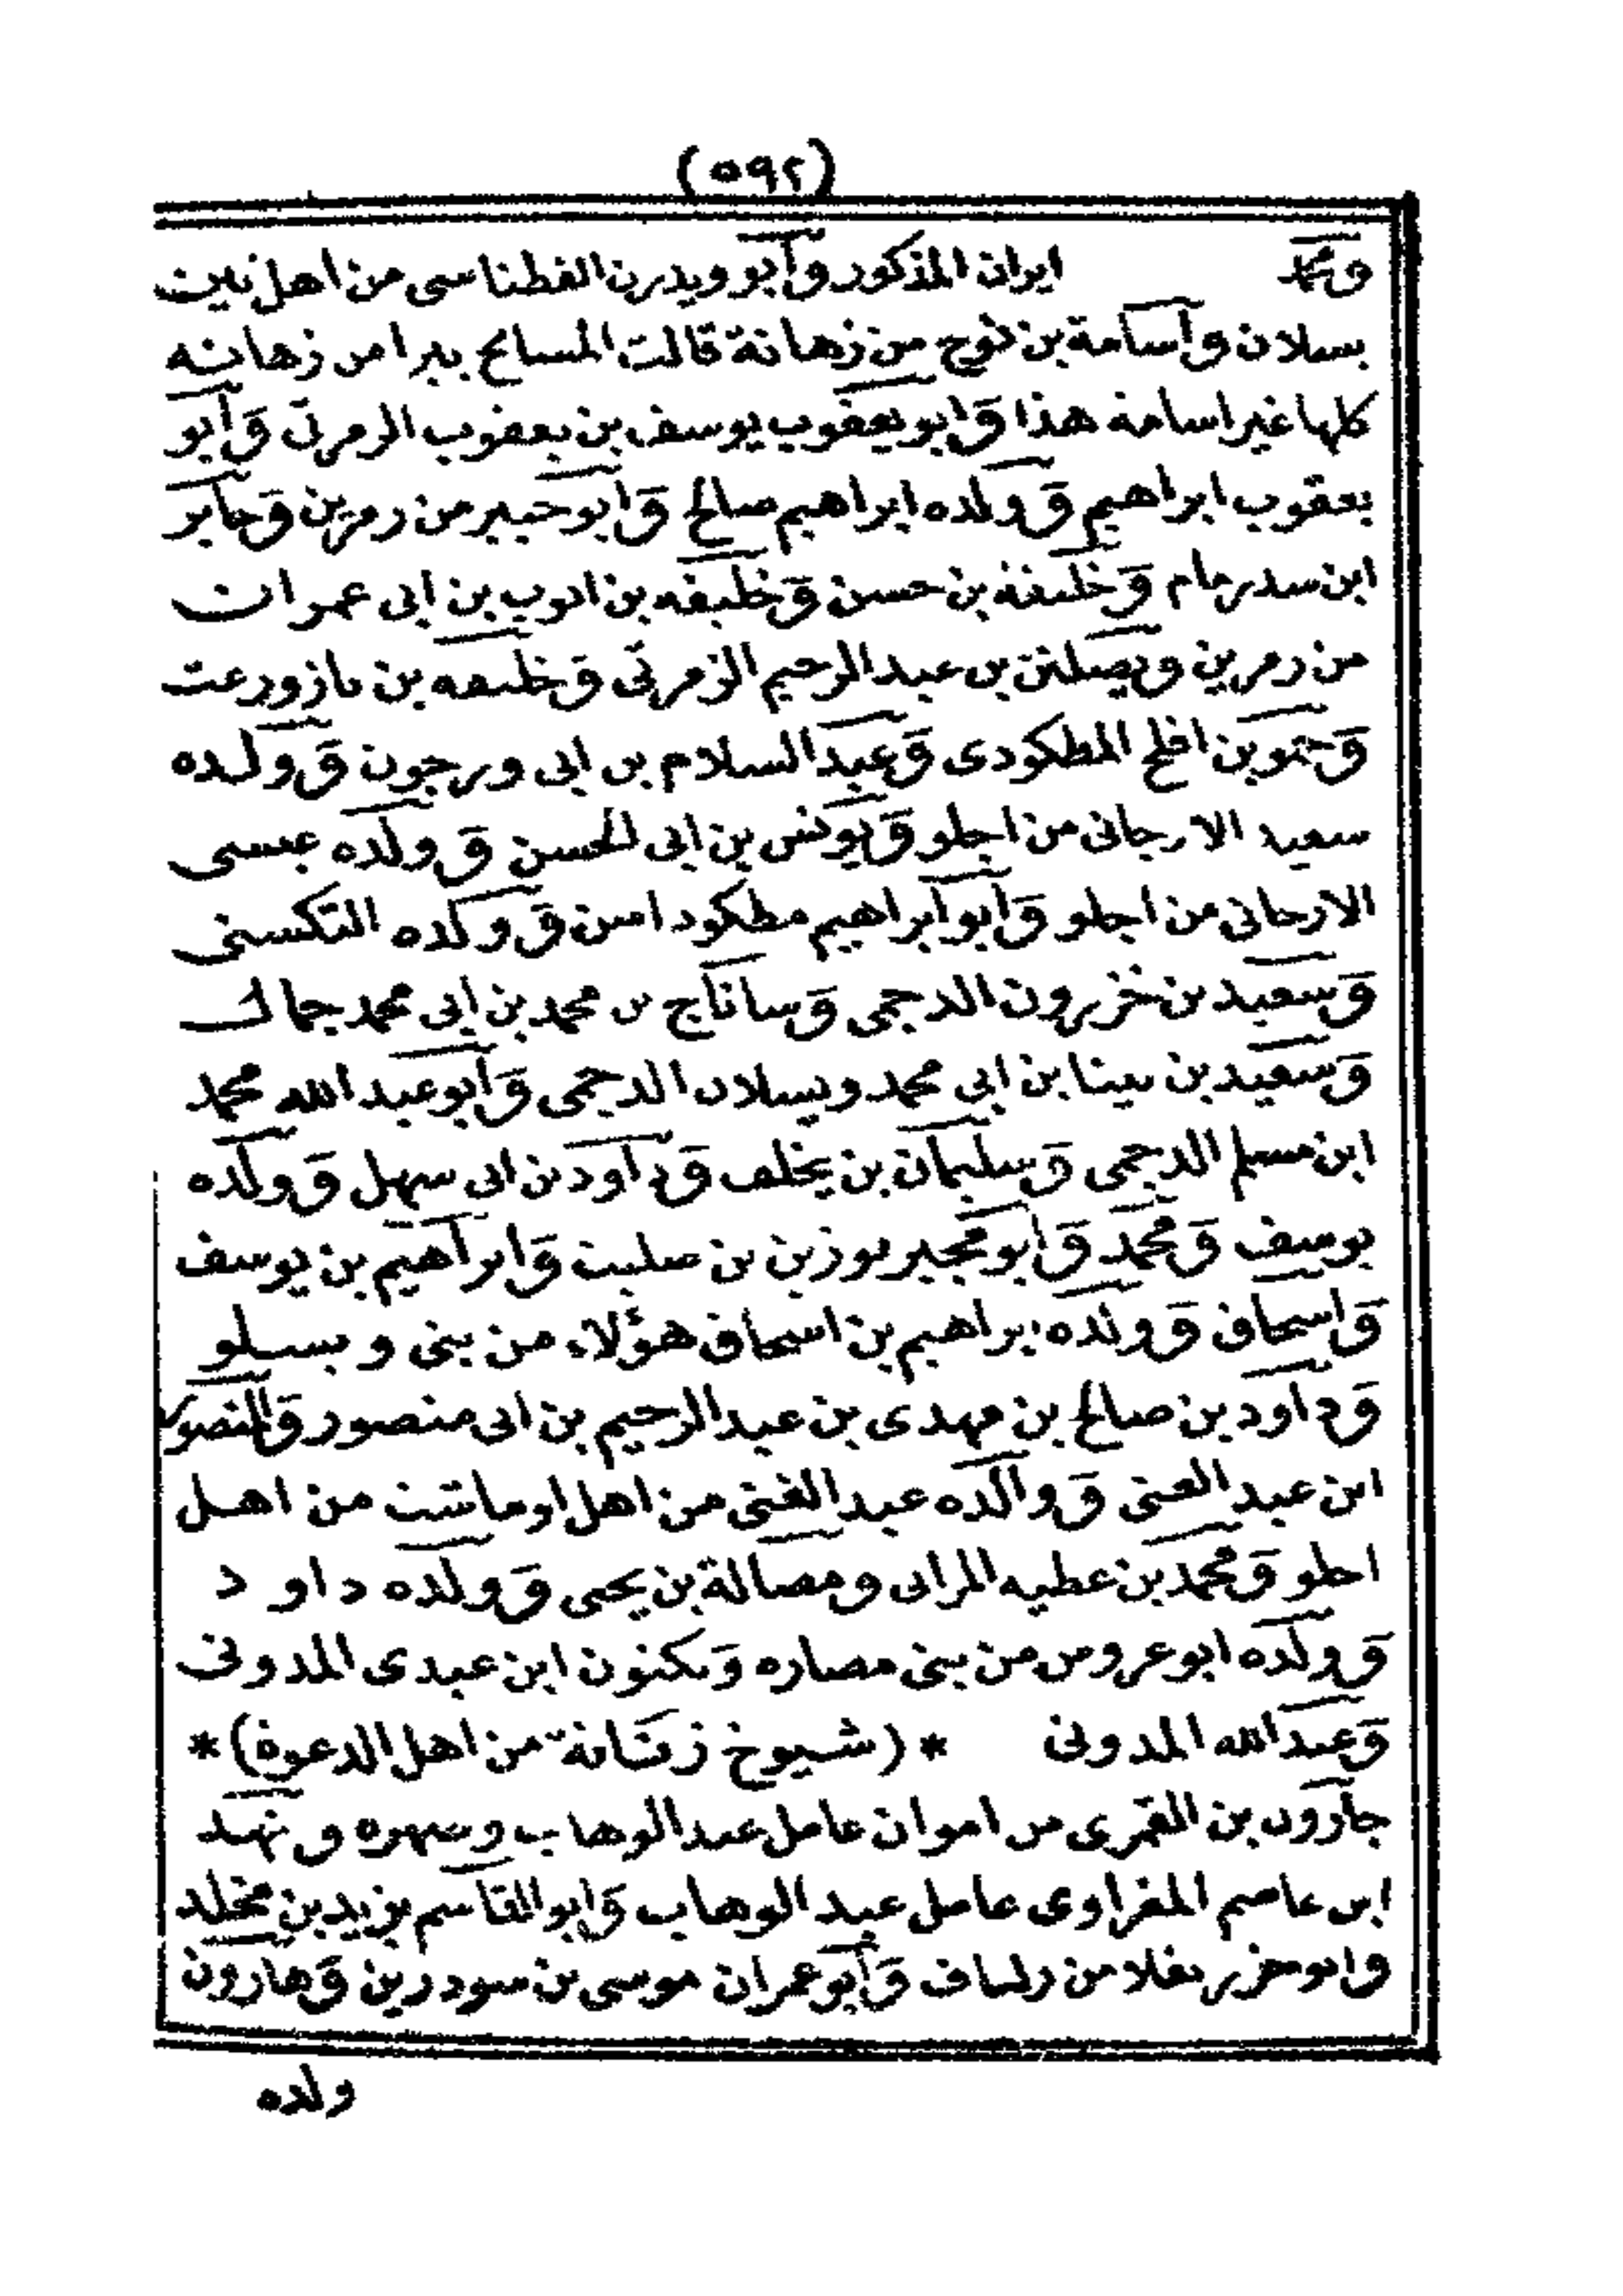 (٥٩٢)
ومحمد ايران المذكور وابو ويدرن الفطناسى من اهل تين
بسلان واسامة بن نوح من زهانة قالت المسايح ببرا من زهانه
كلها غير اسامة هذا وابو يعقوب يوسف بن يعقوب الزمرنى وابو
يعقوب ابراهيم وولده ابراهيم صالح وابو حبير من زمرين وجابر
ابن سدرمام وخليفة بن حسن وخليفه بن ايوب بن ابى عمران
من زمرين ويصلتن بن عبد الرحيم الزمرنى وخليفه بن نازورعت
وحمو بن افلح المطكودى وعبد السلام بن ابى ورجون وولده
سعيد الارجانى من اجلو ويونس بن ابى الحسن وولده عيسى
الارجانى من اجلو وابو ابراهيم مطكوداسن وولده التكسنى
وسعيد بن خزرون الدجمى وساناج بن محمد بن ابى محمد جمال
وسعيد بن يينا بن ابى محمد ويسلان الدجمى وابو عبد الله محمد
ابن مسلم الدجمى وسليمان بن يخلف وداود بن ابى سهل وولده
يوسف ومحمد وابو مجبر بوزين بن صليت وابراهيم بن يوسف
واسحاق وولده ابراهيم بن اسحاق هؤلاء من بنى ويسلو
وداود بن صالح بن مهدى بن عبد الرحيم بن ابى منصور والمنصور
ابن عبد الغنى ووالده عبد الغنى من اهل اوماتنت من اهل
اجلو ومحمد بن عطيه المرانى ومصالة بن يحيى وولده داود
وولده ابو عروس من بنى مصاره ويكنون ابن عبدى المدونى
وعبد الله المدونى * (شيوخ زنانة من اهل الدعوة) *
جارون بن القمرى من اموان عامل عبد الوهاب وصهره ونهد
ابن عاصم المغراوى عامل عبد الوهاب وابو القاسم يزيد بن مخلد
وابو خزر يغلا من زلساف وابو عمران موسى بن سودرين وهارون
ولده